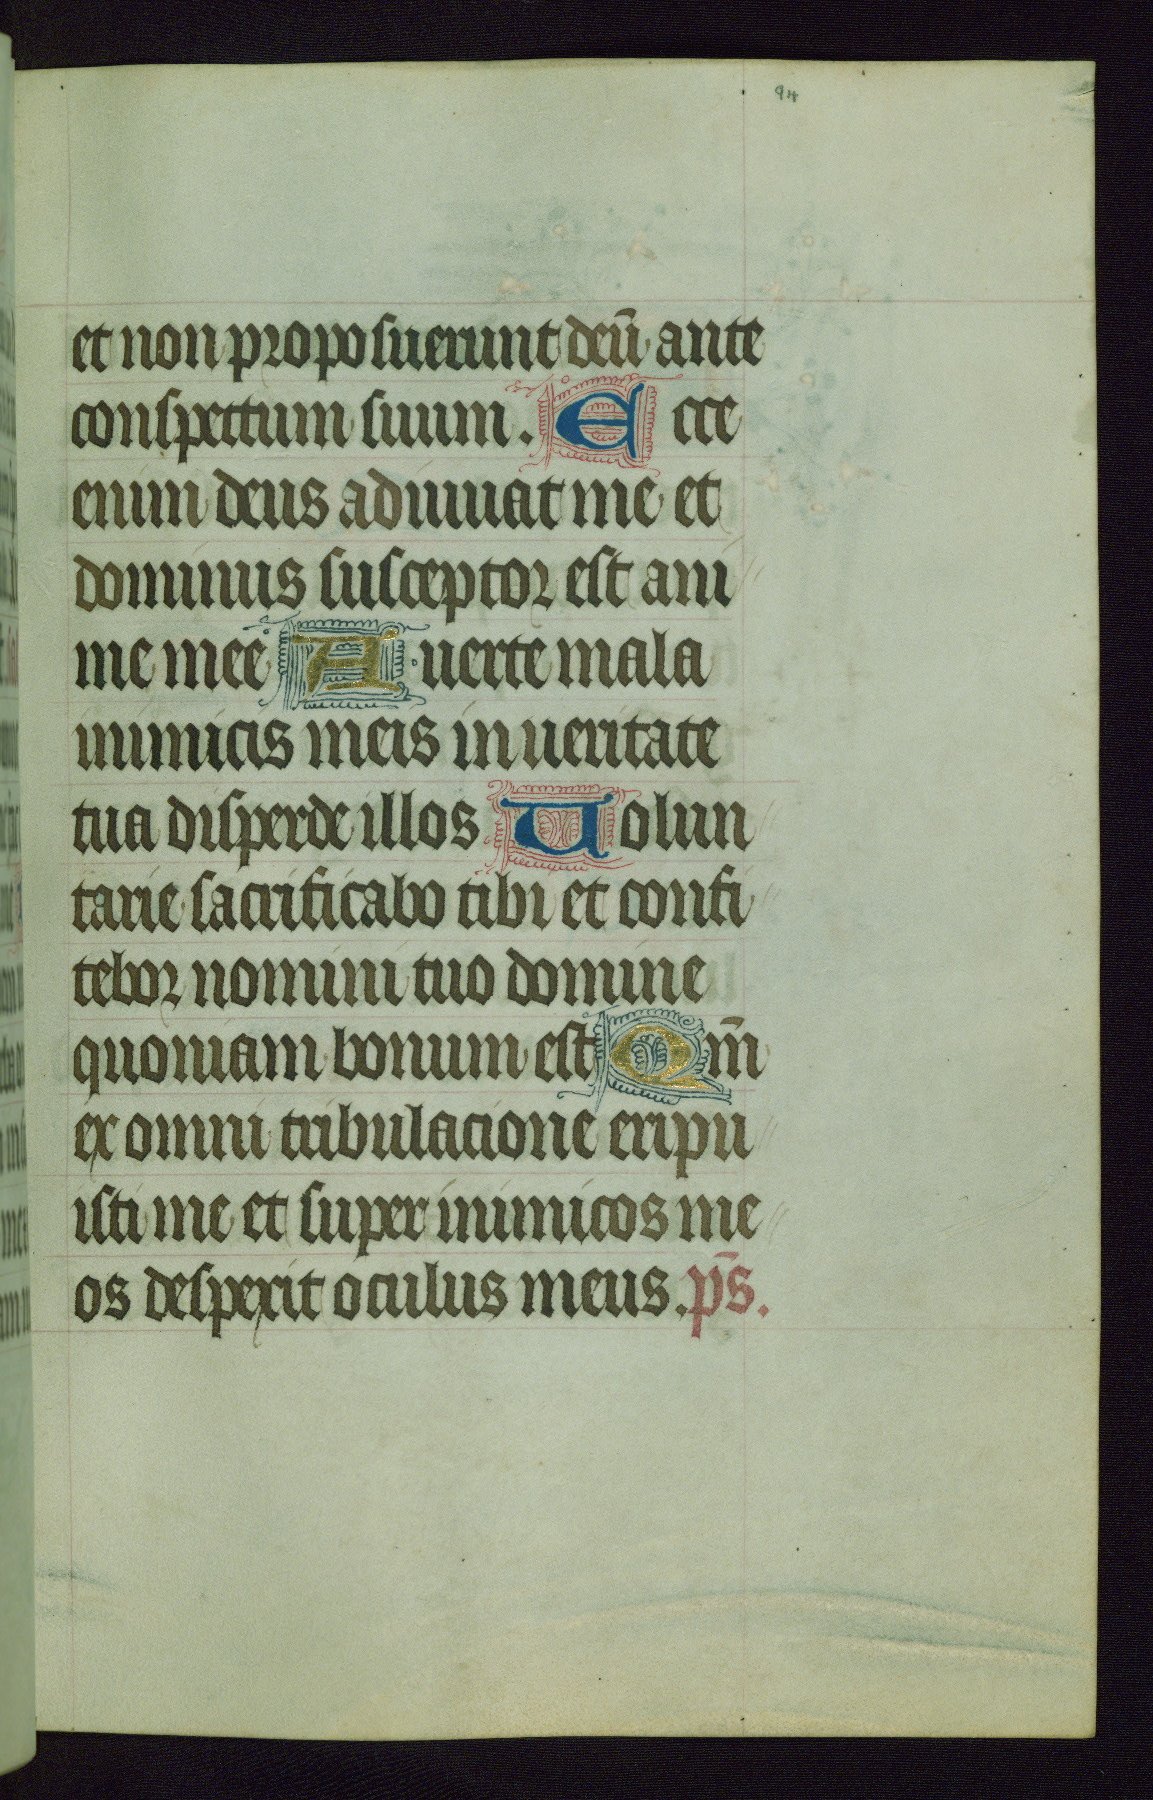 94
et non proposuerunt deū ante
conspectum suum. Ecce
enim deus adiuuat me et
dominus susceptor est ani
me mee Auerte mala
inimicis meis in ueritate
tua disperde illos Uolun
tarie sacrificabo tibi et confi
tebor nomini tuo domine
quoniam bonum est Qm̄
ex omni tribulacione eripu
isti me et super inimicos me
os despexit oculus meus. p̄s.